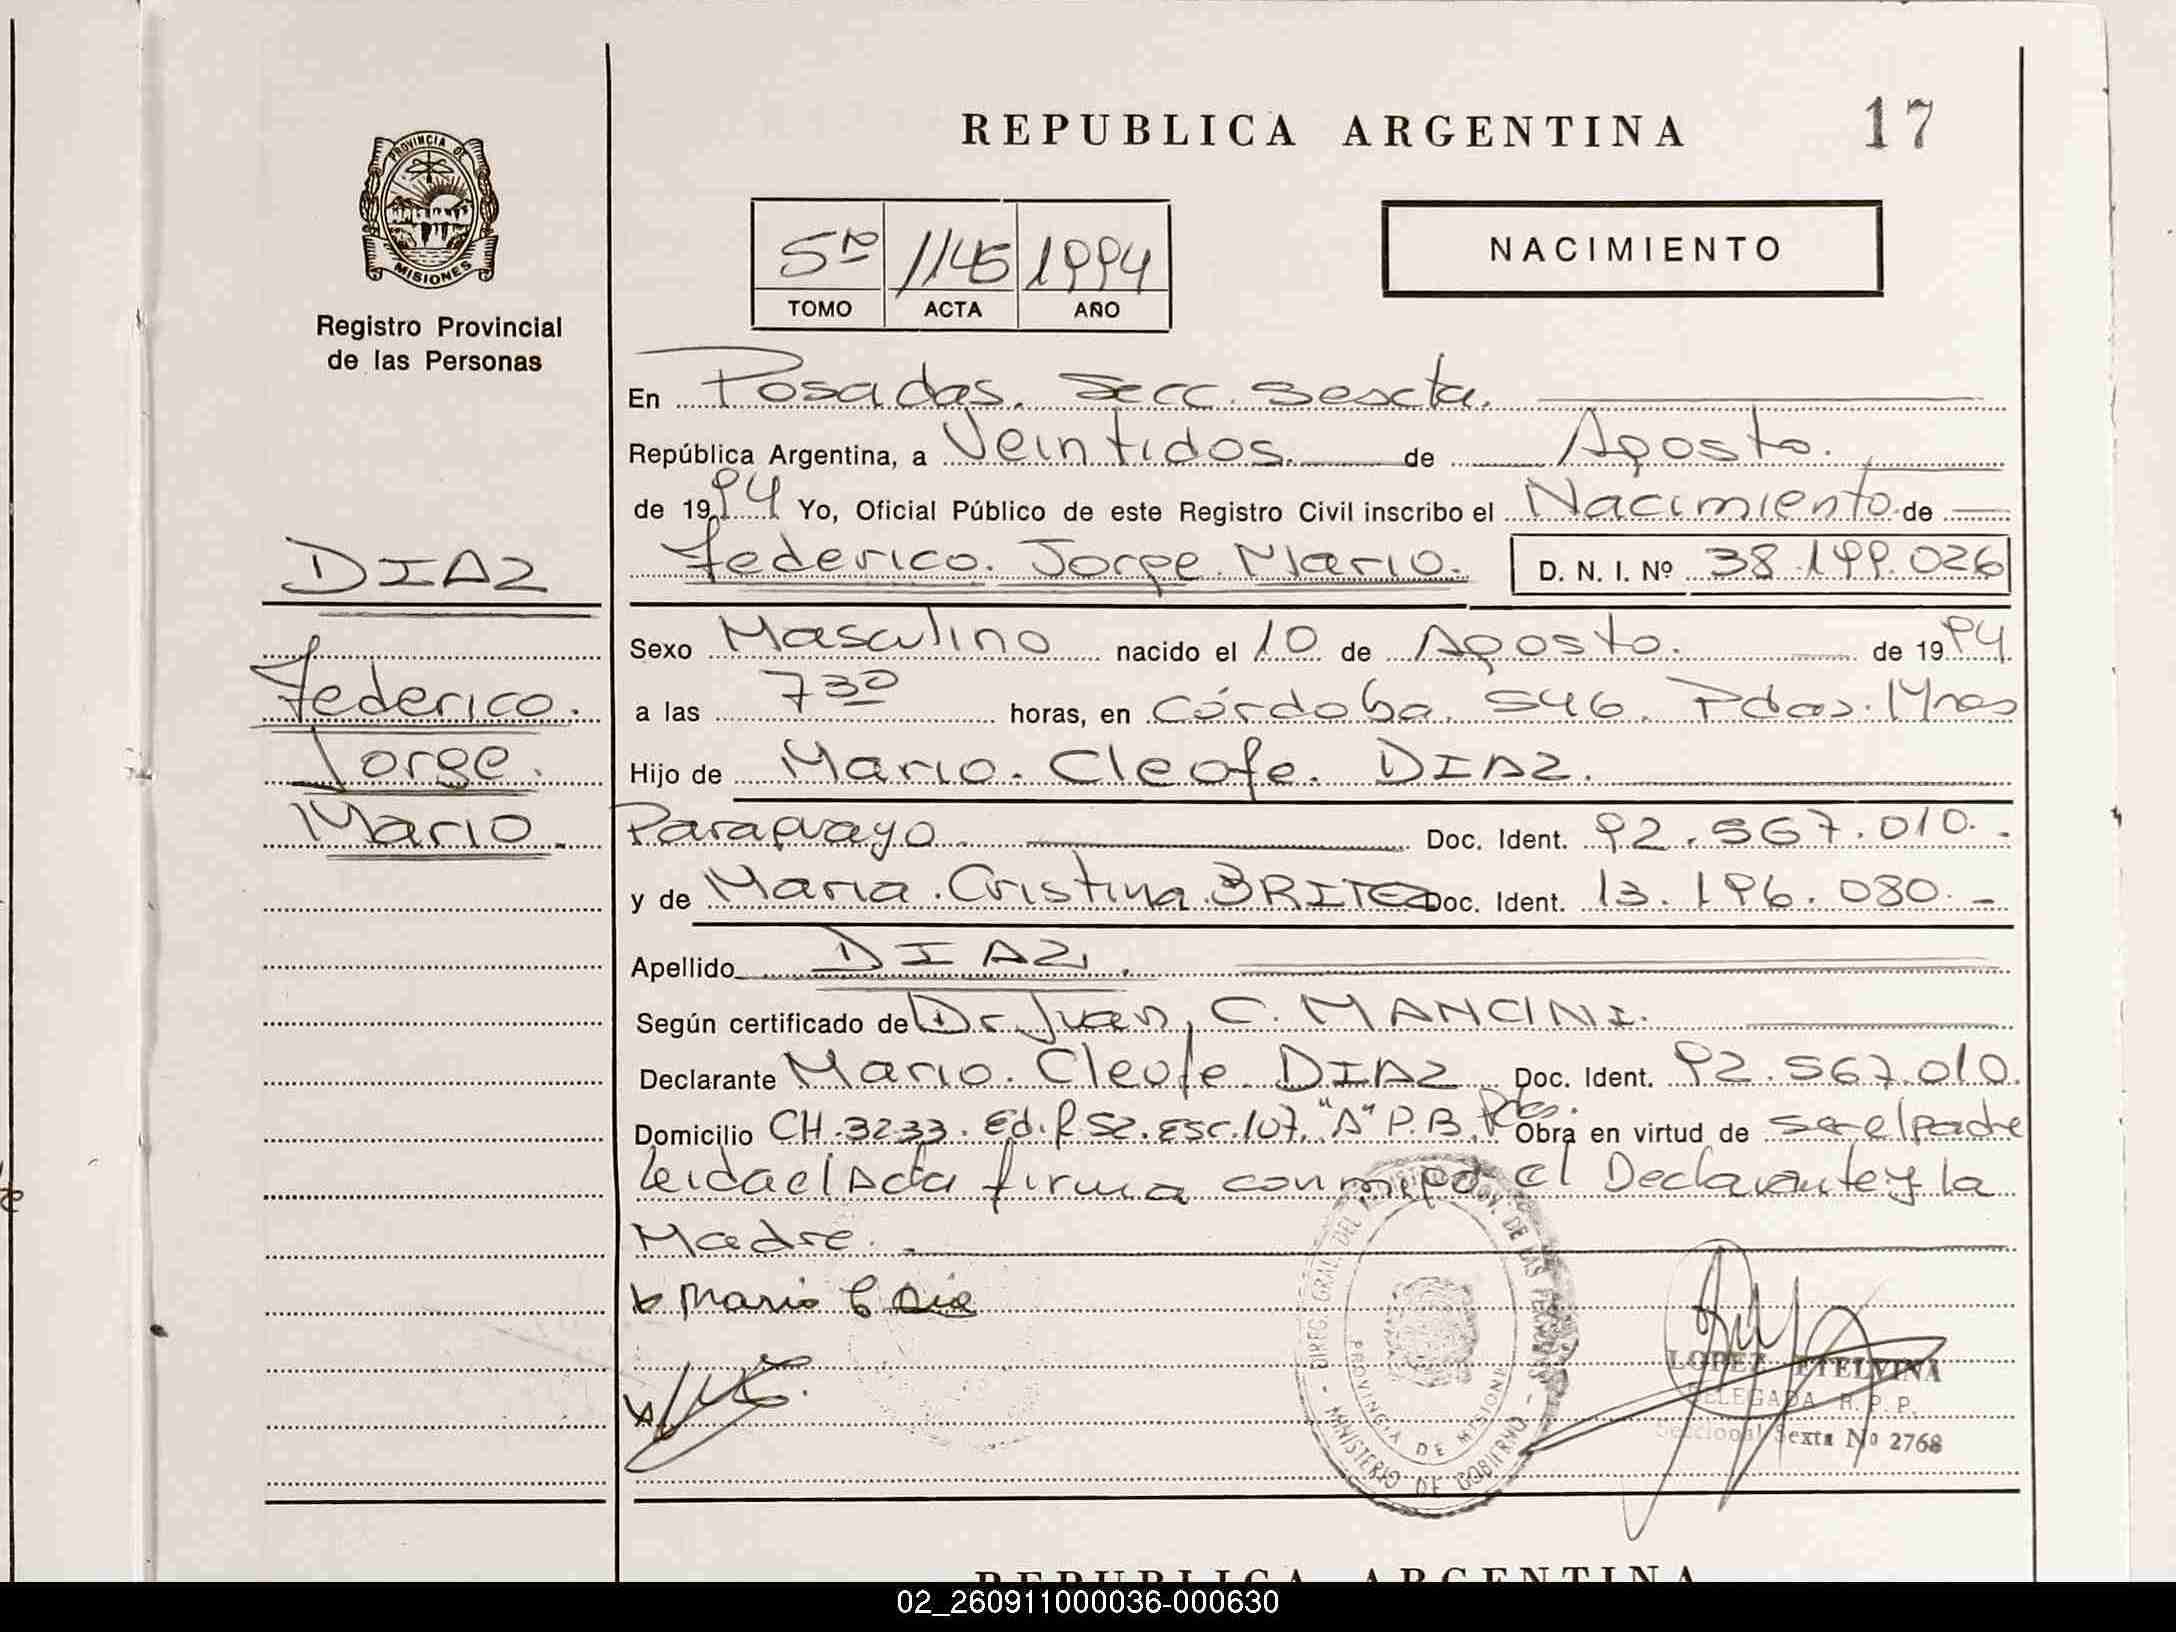 REPUBLICA ARGENTINA 17
PROVINCIA DE
MISIONES
Registro Provincial
de las Personas
5to 1145 1994
TOMO ACTA AÑO
NACIMIENTO
En Posadas. Secc. Sescta.
República Argentina, a Veintidos. de Agosto.
de 1994 Yo, Oficial Público de este Registro Civil inscribo el Nacimiento de
Federico. Jorge. Mario. D. N. I. Nº 38.199.026
DIAZ
Federico.
Jorge.
Mario.
Sexo Masculino nacido el 10 de Agosto. de 1994
a las 730 horas, en Córdoba. 546. Pdas. Mnes
Hijo de Mario. Cleofe. DIAZ.
Paraguayo Doc. Ident. 92.567.010.-
y de Maria. Cristina. BRITEZ Doc. Ident. 13.196.080.-
Apellido DIAZ.
Según certificado de Dr. Juan, C. MANCINI.
Declarante Mario. Cleofe. DIAZ Doc. Ident. 92.567.010.
Domicilio CH.3233. Edif 52. esc. 107. "A" P.B. Pdas. Obra en virtud de ser el padre
leida el Acta firma con migo el Declarante y la
Madre.
Mario C Diaz
DIREC. GRAL. DEL REGISTRO PROV. DE LAS PERSONAS
PROVINCIA DE MISIONES
MINISTERIO DE GOBIERNO
LOPEZ ETELVINA
DELEGADA R. P. P.
Seccional Sexta Nº 2768
REPUBLICA ARGENTINA
02_260911000036-000630